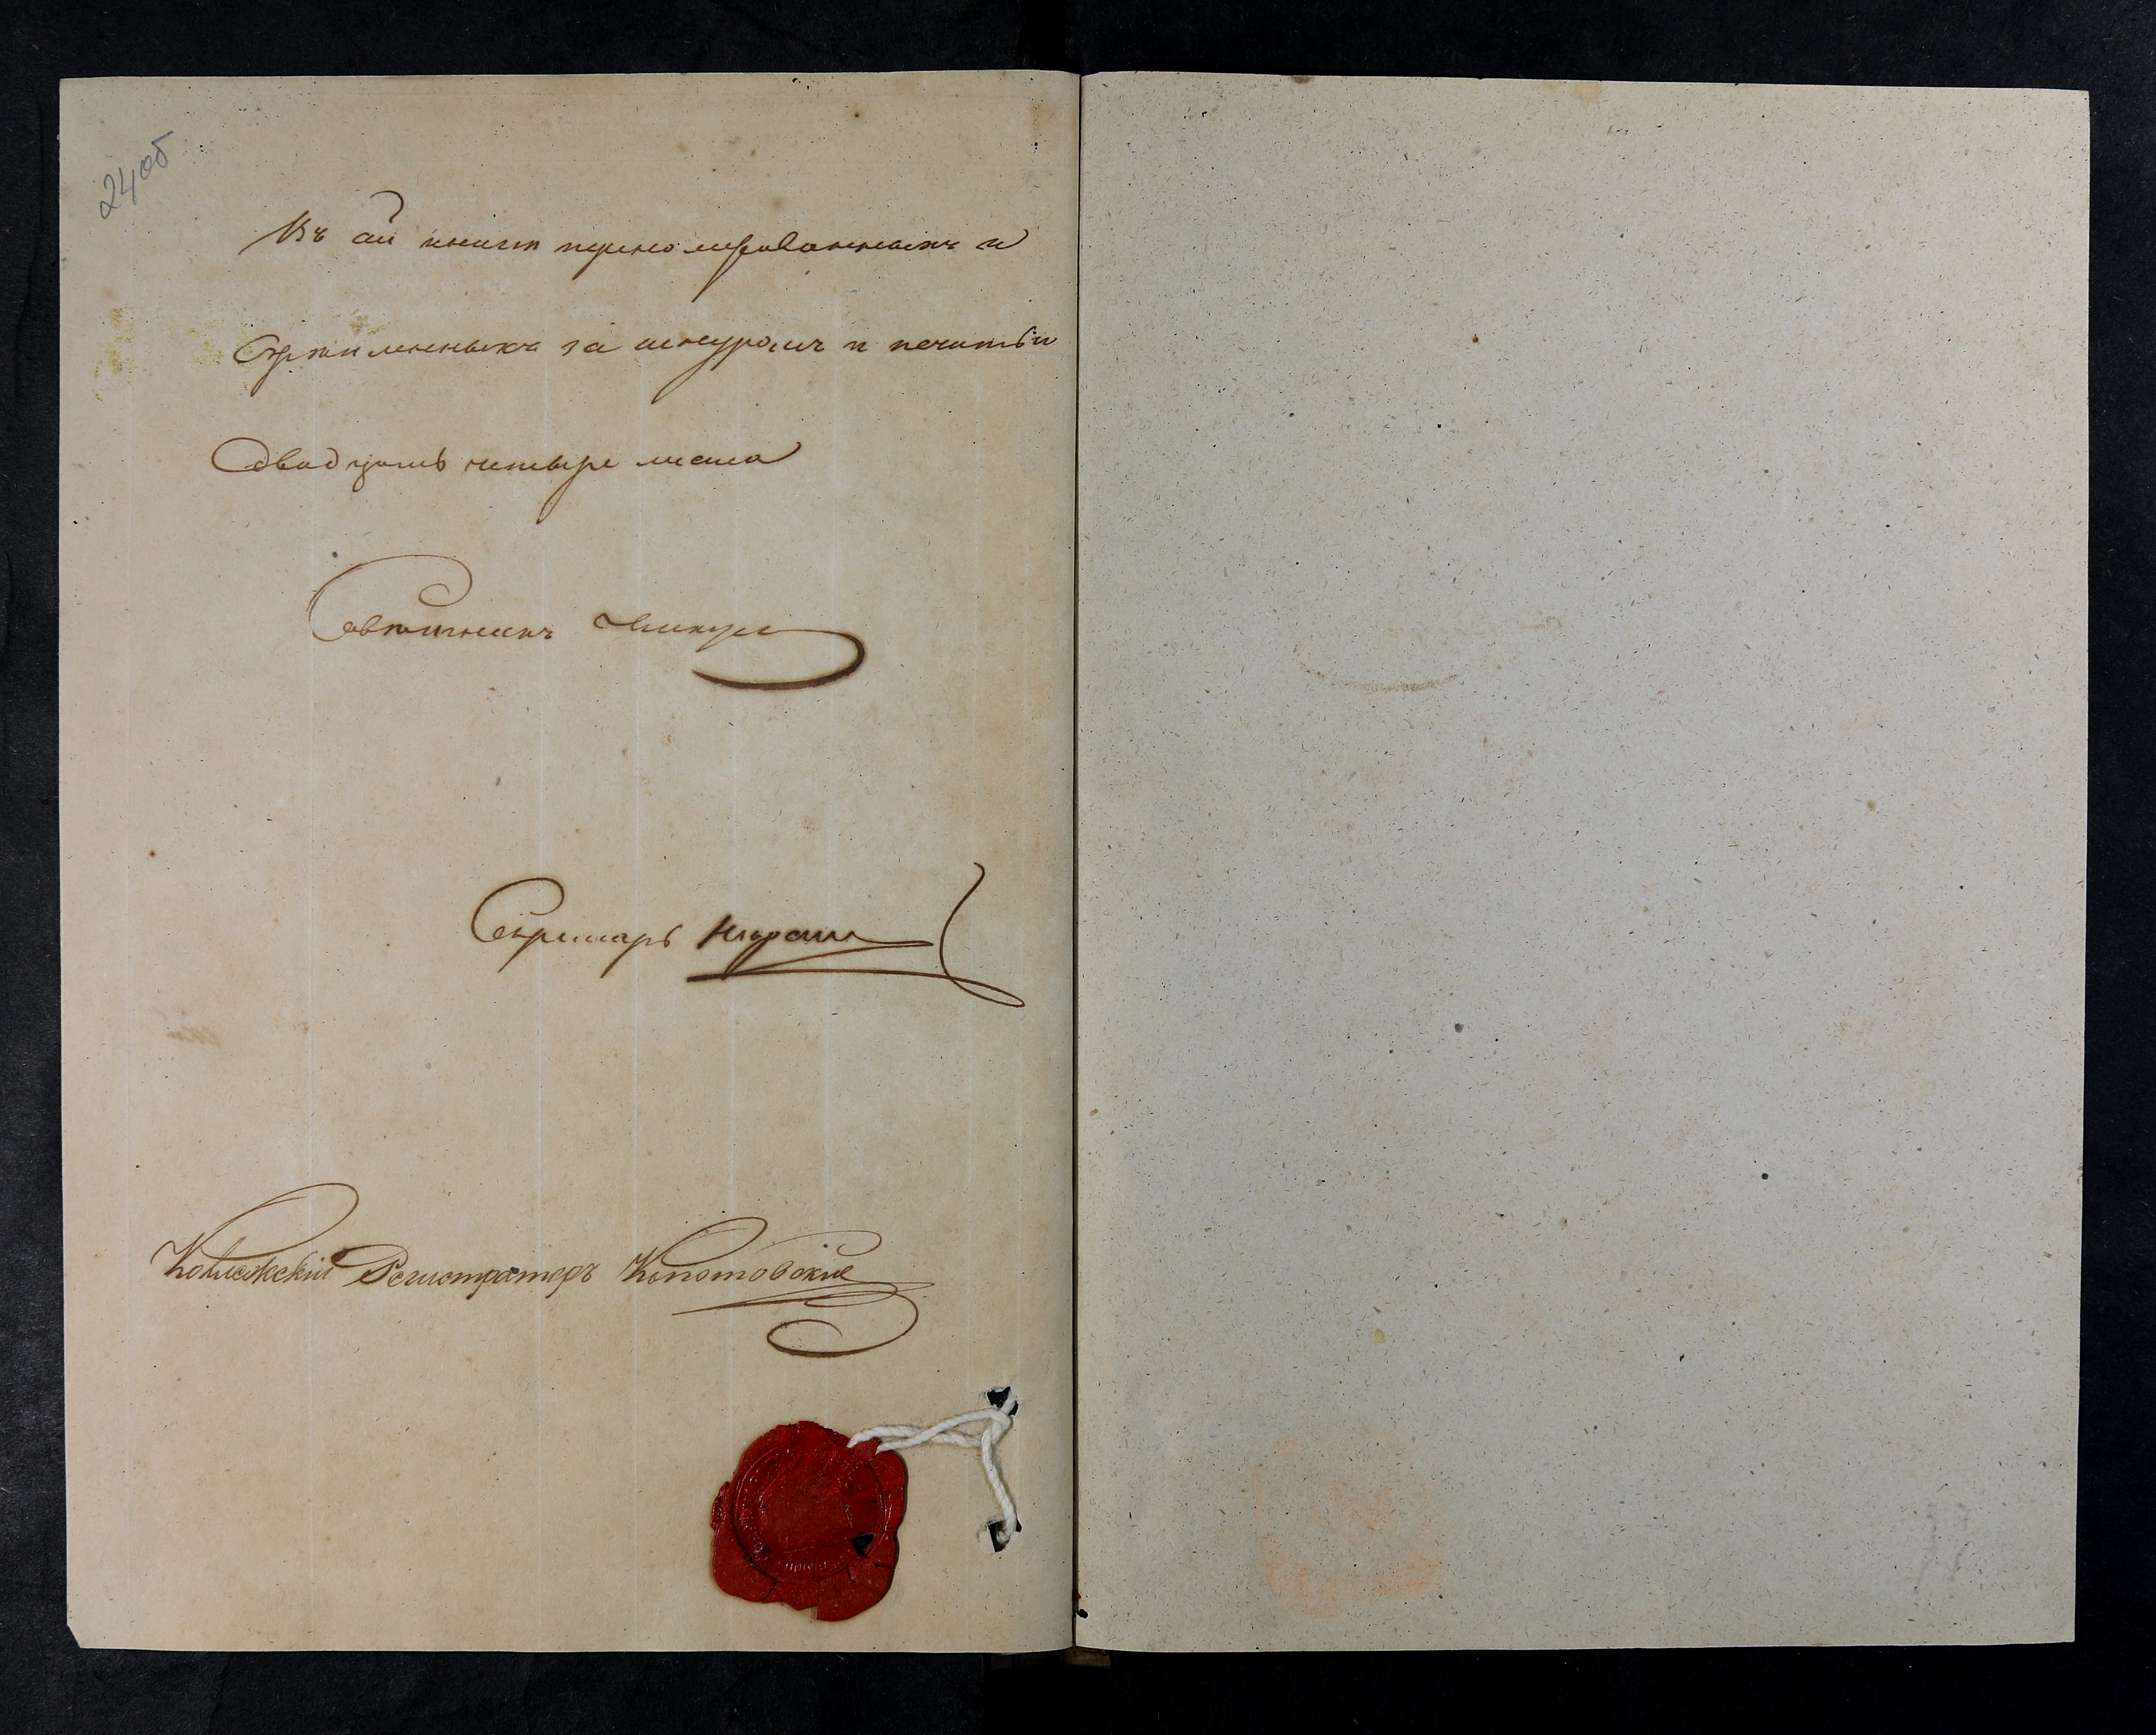 24об
Въ сей книгѣ перенумерованныхъ и
скрѣпленныхъ за шнуромъ и печатью
двадцать четыре листа
Совѣтникъ
Секретарь
Коллежскій Регистраторъ Копотовскій